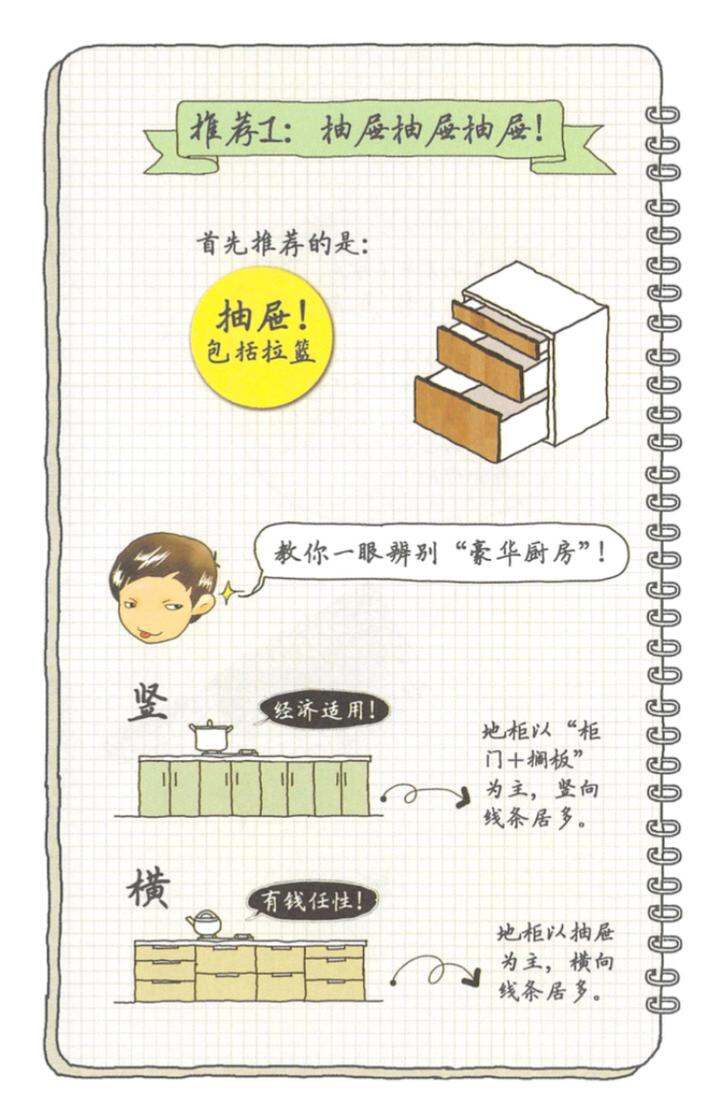 推荐1：抽屉抽屉抽屉！
首先推荐的是：
抽屉！
包括拉篮
教你一眼辨别“豪华厨房”！
竖
经济适用！
地柜以“柜
门＋搁板”
为主，竖向
线条居多。
横
有钱任性！
地柜以抽屉
为主，横向
线条居多。